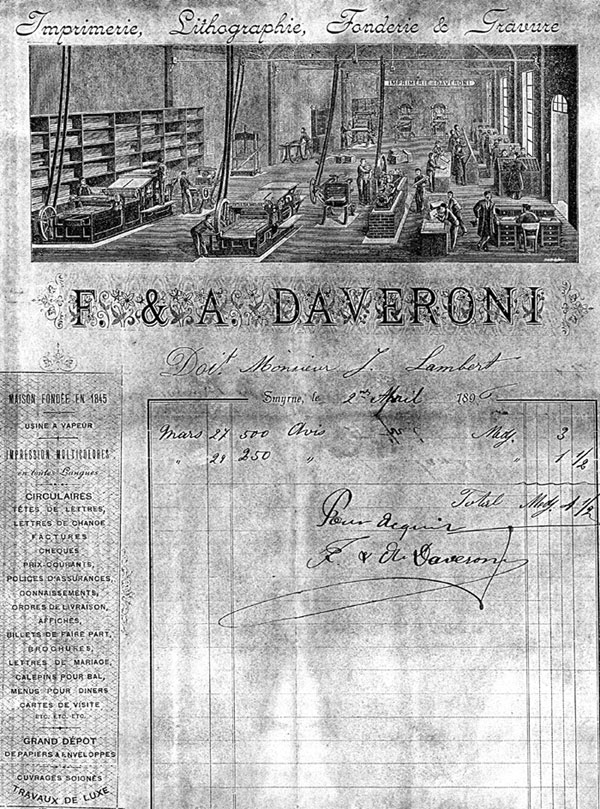 Imprimerie, Lithographie, Fonderie & Gravure
IMPRIMERIE DAVERONI
F. & A. DAVERONI
Doit Monsieur J. Lambert
Smyrne, le 2 April 1896
Mars 27 500 Avis Medj. 3
" 29 250 " " 1 1/2
Total Medj 4 1/2
Pour acquit
F. & A. Daveroni
MAISON FONDÉE EN 1845
USINE A VAPEUR
IMPRESSION MULTICOLORES
en toutes Langues
CIRCULAIRES
TÊTES DE LETTRES,
LETTRES DE CHANGE
FACTURES
CHEQUES
PRIX-COURANTS,
POLICES D'ASSURANCES,
CONNAISSEMENTS,
ORDRES DE LIVRAISON,
AFFICHES,
BILLETS DE FAIRE PART,
BROCHURES,
LETTRES DE MARIAGE,
CALEPINS POUR BAL,
MENUS POUR DINERS
CARTES DE VISITE
ETC. ETC. ETC.
GRAND DÉPOT
DE PAPIERS & ENVELOPPES
OUVRAGES SOIGNÉS
TRAVAUX DE LUXE